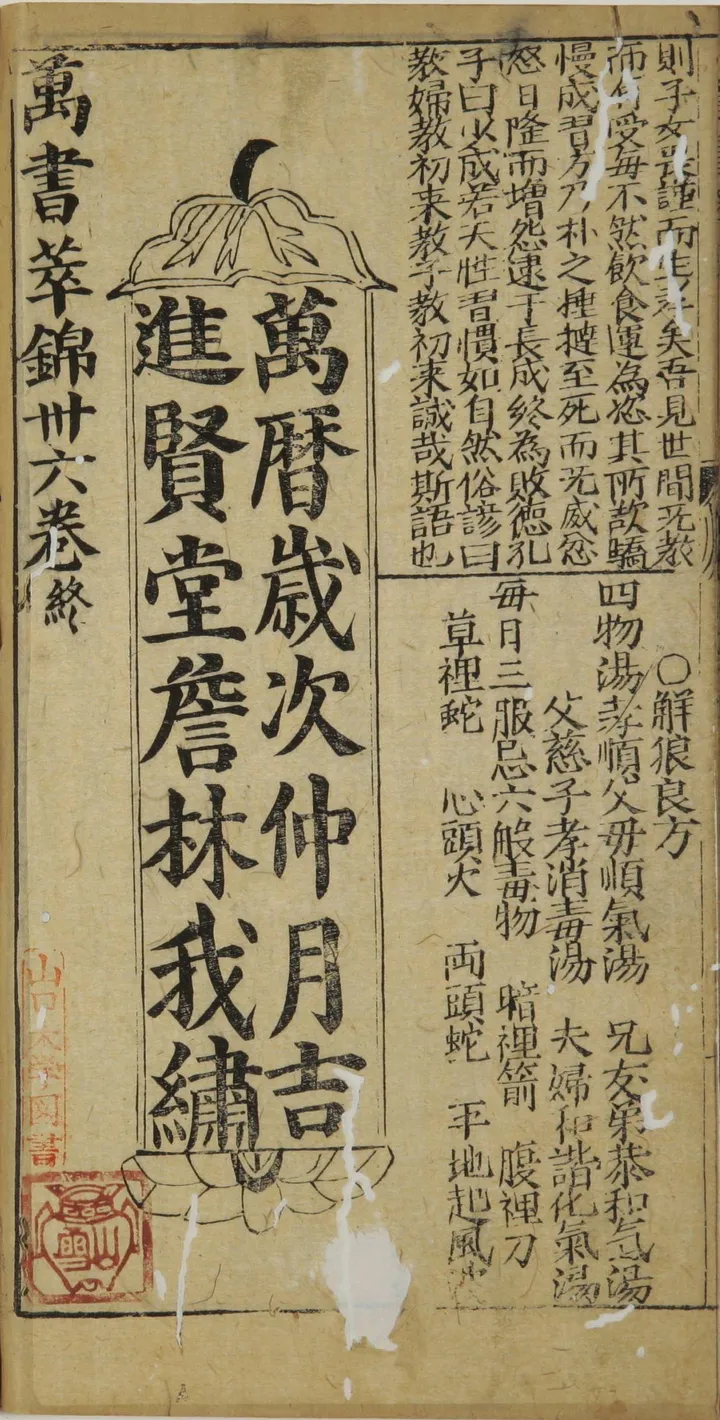 則子女畏謹而生孝矣吾見世間旡教
而有受每不然飲食運為恣其所欲驕
慢成習方乃朴之捶撻至死而旡威忿
怒日隆而増怨逮于長成終為敗徳孔
子曰少成若天性習慣如自然俗諺曰
教婦教初来教子教初来誠哉斯語也
○觧狼良方
四物湯孝順父毋順氣湯　兄友弟恭和氣湯
父慈子孝消毒湯　夫婦和諧化氣湯
毎日三服忌六般毒物　暗裡箭　腹裡刀
草裡蛇　心頭火　両頭蛇　平地起風波
萬暦歳次仲月吉
進賢堂詹林我繡
萬書萃錦卅六卷終
山口大学図書